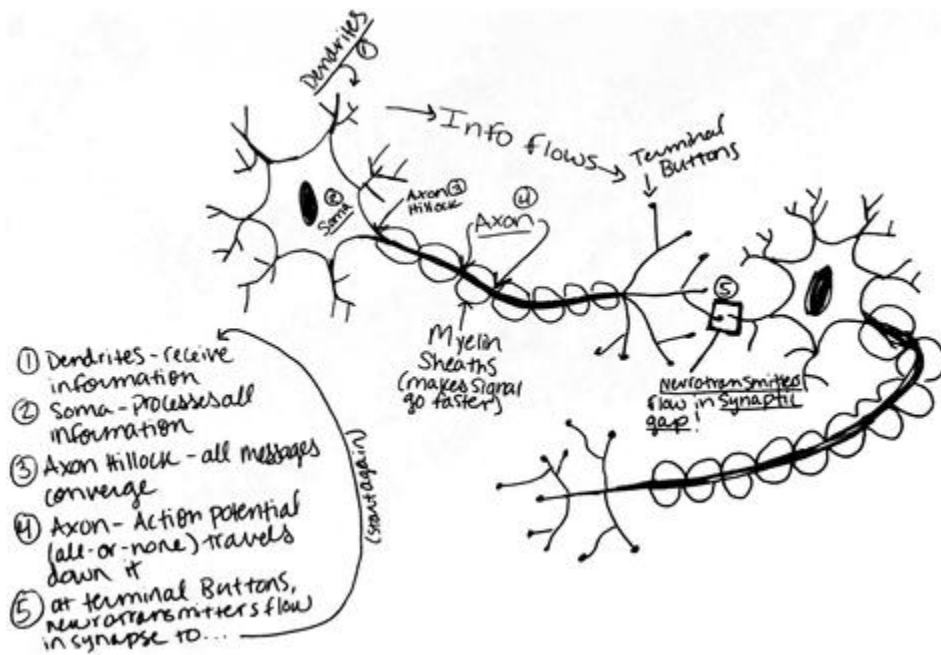 Dendrites
①
→ Info flows →
Terminal
Buttons
② Soma
Axon ③
Hillock
④
Axon
⑤
Myelin
Sheaths
(makes signal
go faster)
Neurotransmitters
flow in Synaptic
gap!
① Dendrites - receive
information
② Soma - Processes all
information
③ Axon Hillock - all messages
converge
④ Axon - Action potential
(all-or-none) travels
down it
⑤ at terminal Buttons,
neurotransmitters flow
in synapse to...
(start again)